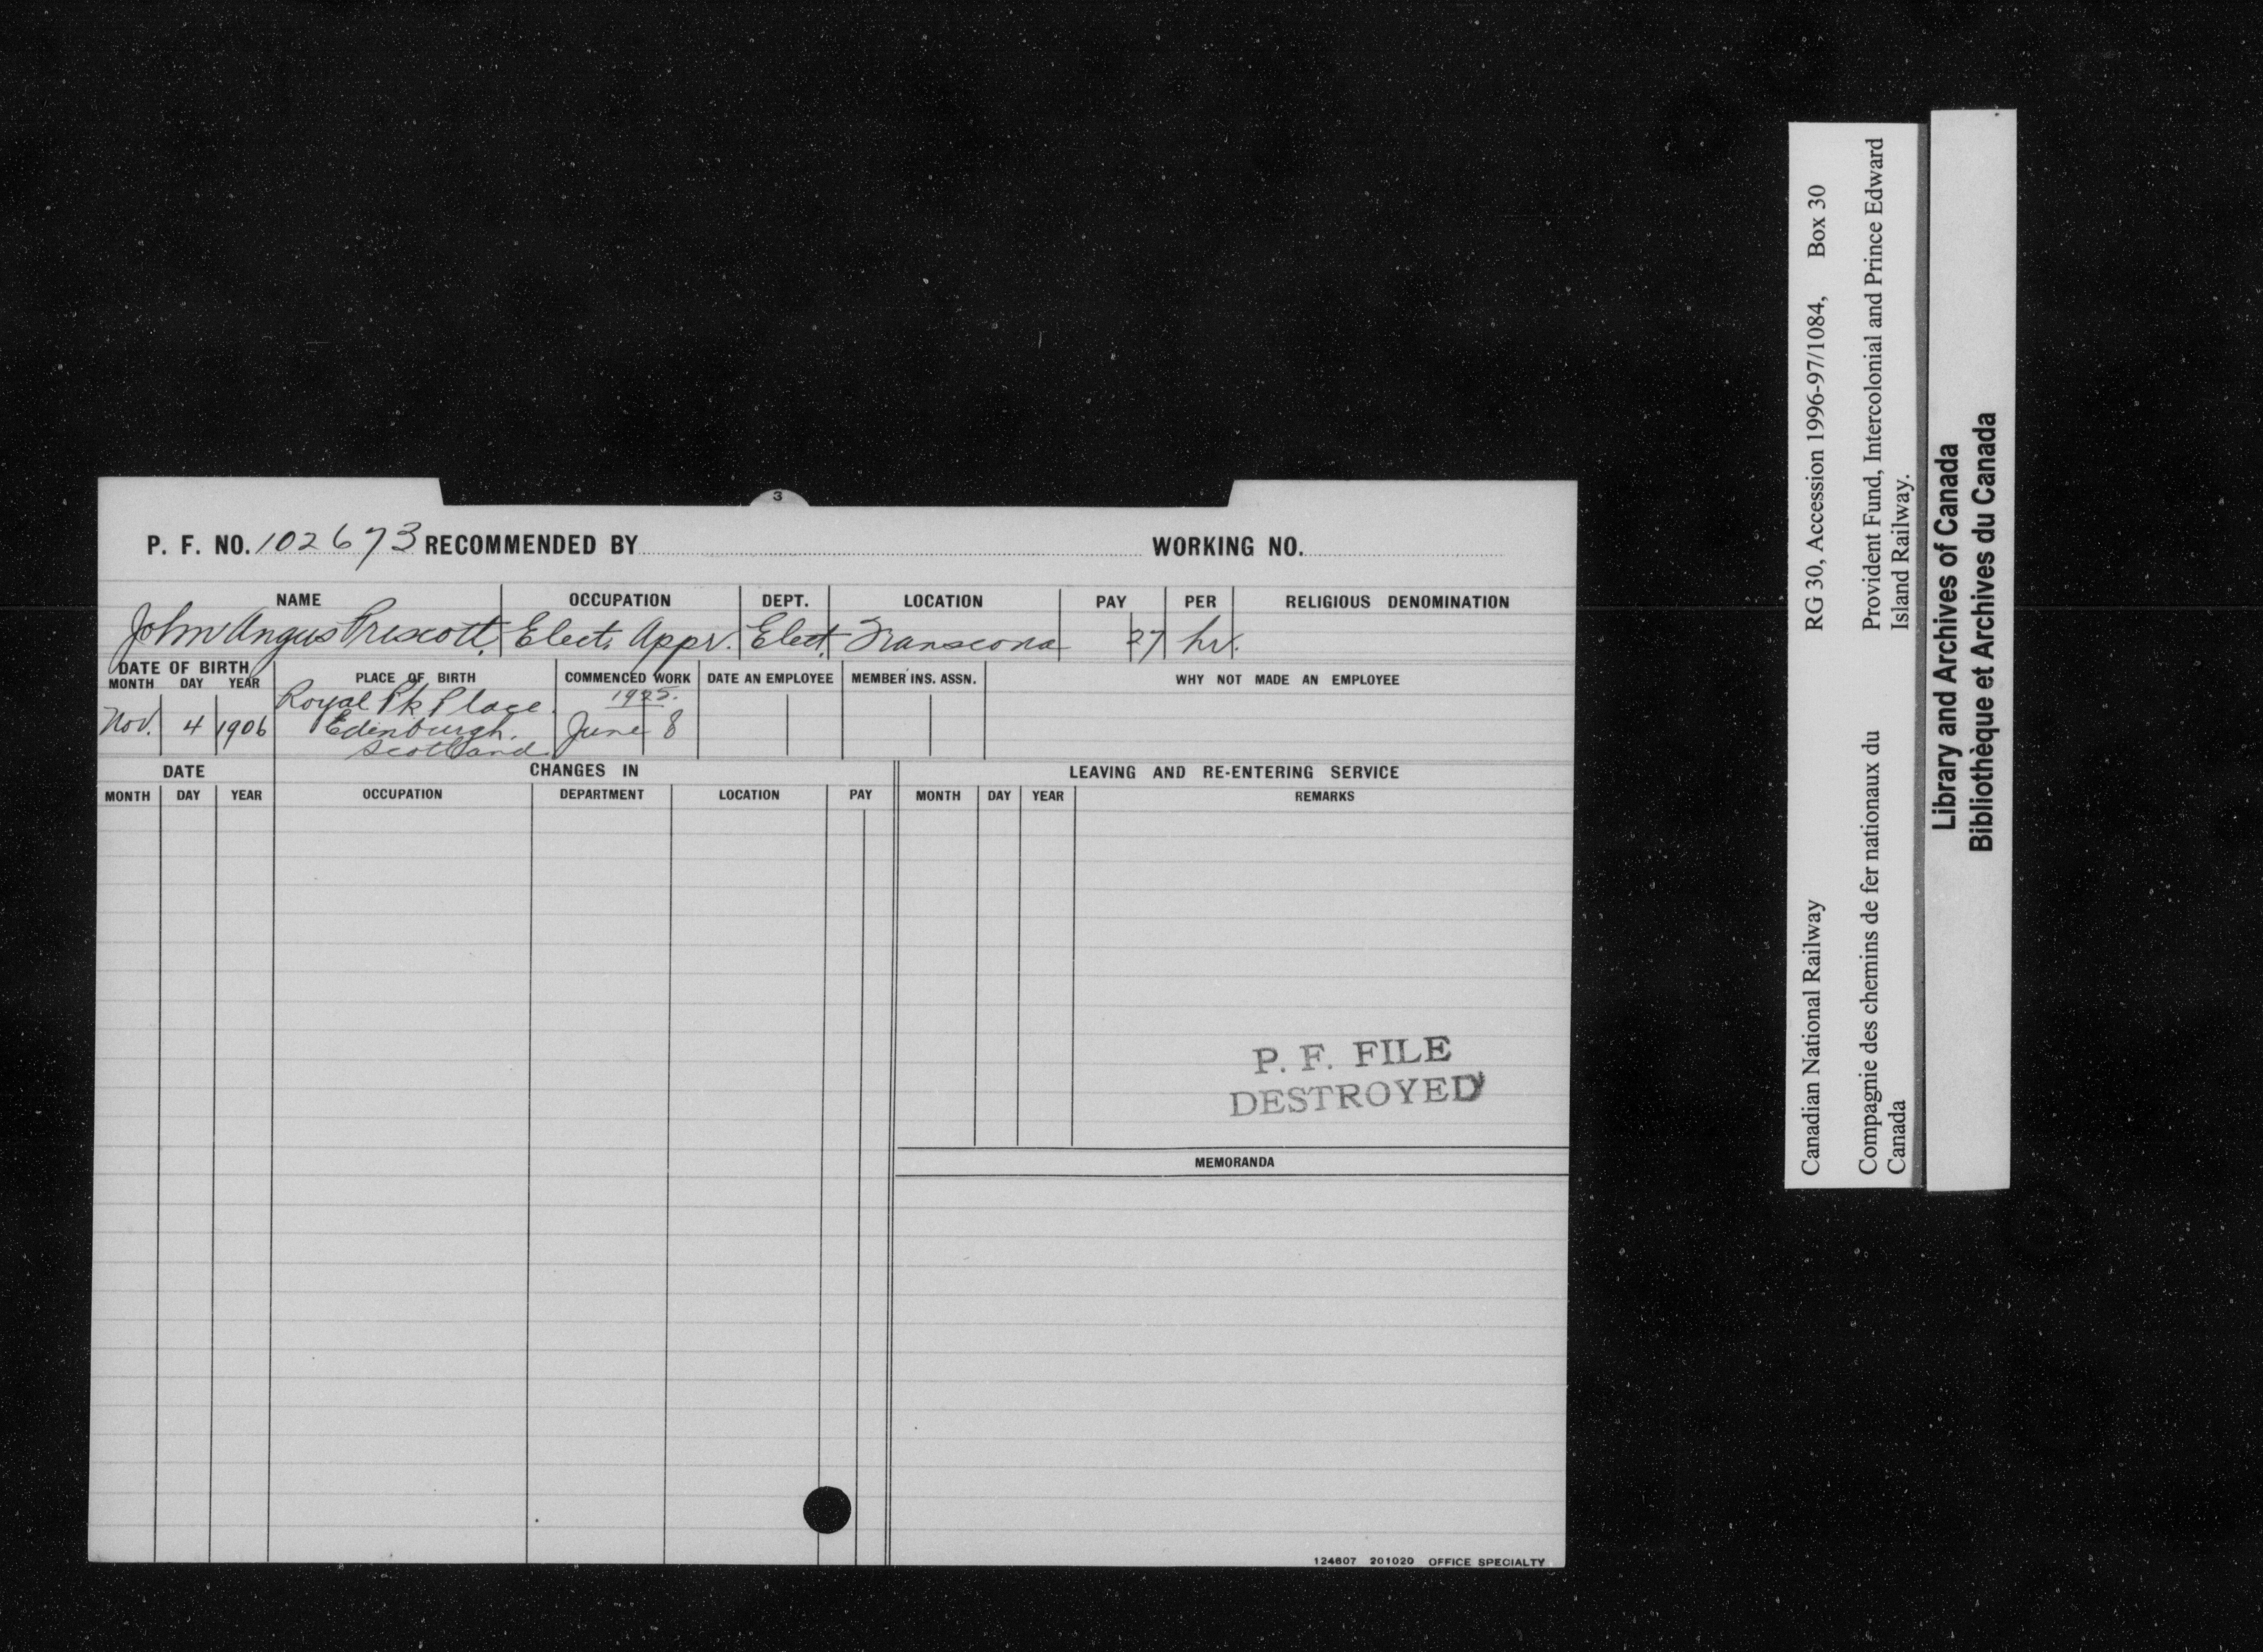 3
P. F. NO. 102673 RECOMMENDED BY WORKING NO.
NAME OCCUPATION DEPT. LOCATION PAY PER RELIGIOUS DENOMINATION
John Angus Priscott. Elect. Appr. Elect. Transcona 27 hr.
DATE OF BIRTH PLACE OF BIRTH COMMENCED WORK DATE AN EMPLOYEE MEMBER INS. ASSN. WHY NOT MADE AN EMPLOYEE
MONTH DAY YEAR
Royal Pk Place. 1925.
Nov. 4 1906 Edinburgh. June 8
Scotland.
DATE CHANGES IN LEAVING AND RE-ENTERING SERVICE
MONTH DAY YEAR OCCUPATION DEPARTMENT LOCATION PAY MONTH DAY YEAR REMARKS
P. F. FILE
DESTROYED
MEMORANDA
124607 201020 OFFICE SPECIALTY
Canadian National Railway RG 30, Accession 1996-97/1084, Box 30
Compagnie des chemins de fer nationaux du Provident Fund, Intercolonial and Prince Edward
Canada Island Railway.
Library and Archives of Canada
Bibliothèque et Archives du Canada